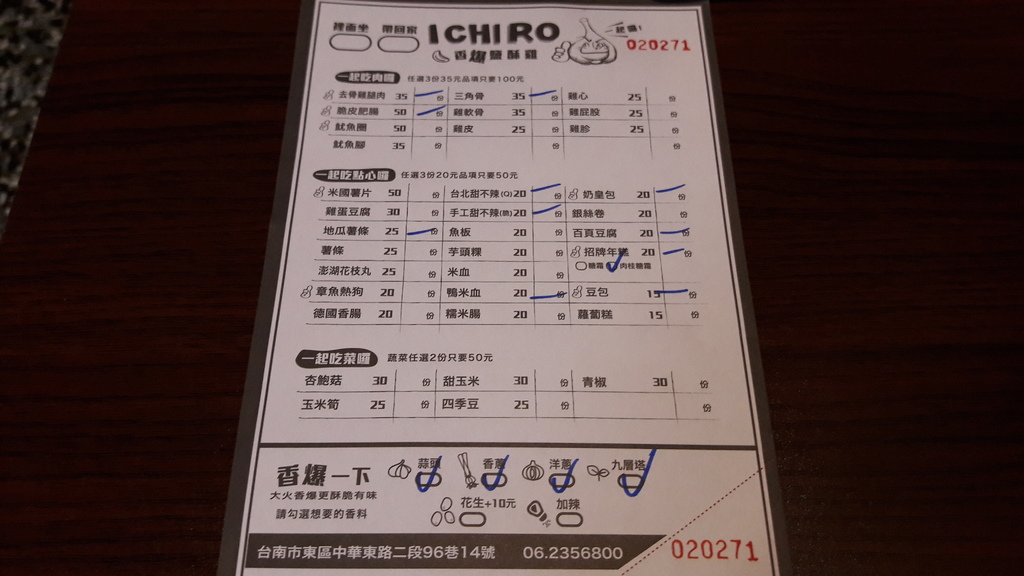 裡面坐 帶回家 ICHIRO 起嗎! 020271
香爆鹽酥雞
一起吃肉囉 任選3份35元品項只要100元
去骨雞腿肉 35 份 三角骨 35 份 雞心 25 份
脆皮肥腸 50 份 雞軟骨 35 份 雞屁股 25 份
魷魚圈 50 份 雞皮 25 份 雞胗 25 份
魷魚腳 35 份 份 份
一起吃點心囉 任選3份20元品項只要50元
米國薯片 50 份 台北甜不辣(Q) 20 份 奶皇包 20 份
雞蛋豆腐 30 份 手工甜不辣(脆) 20 份 銀絲卷 20 份
地瓜薯條 25 份 魚板 20 份 百頁豆腐 20 份
薯條 25 份 芋頭粿 20 份 招牌年糕 20 份
糖霜 肉桂糖霜
澎湖花枝丸 25 份 米血 20 份
章魚熱狗 20 份 鴨米血 20 份 豆包 15 份
德國香腸 20 份 糯米腸 20 份 蘿蔔糕 15 份
一起吃菜囉 蔬菜任選2份只要50元
杏鮑菇 30 份 甜玉米 30 份 青椒 30 份
玉米筍 25 份 四季豆 25 份 份
香爆一下 蒜頭 香蔥 洋蔥 九層塔
大火香爆更酥脆有味
請勾選想要的香料 花生+10元 加辣
台南市東區中華東路二段96巷14號 06.2356800 020271